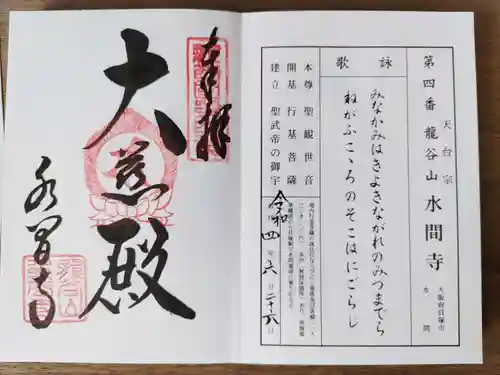 奉拝
大慈殿
水間寺
天台宗
第四番 龍谷山 水間寺
大阪府貝塚市
水間
詠歌
みなかみはきよきながれのみつまでら
ねがふこゝろのそこはにごらじ
本尊 聖観世音
開基 行基菩薩
建立 聖武帝の御宇
令和四年六月二十六日